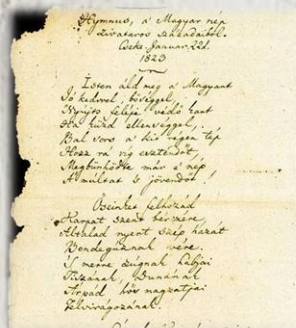 Hymnus, a' Magyar nép
zivataros századaiból.
Cseke Január 22d.
1823
Isten áldd meg a' Magyart
Jó kedvvel, bőséggel,
Nyújts feléje védő kart
Ha küzd ellenséggel;
Bal sors a' kit régen tép
Hozz rá víg esztendőt,
Megbűnhődte már e' nép
A' múltat 's jövendőt!
Őseinket felhozád
Kárpát szent bérczére,
Általad nyert szép hazát
Bendegúznak vére.
'S merre zúgnak habjai
Tiszának, Dunának,
Árpád hős magzatjai
Felvirágozának.